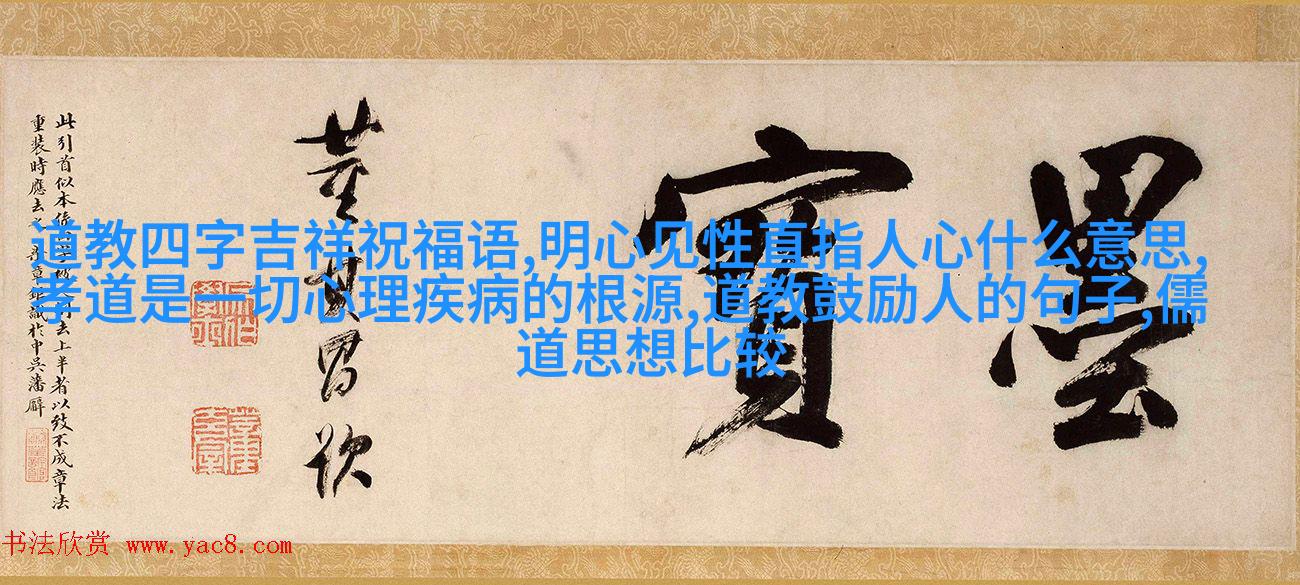 墨寶
董其昌
此引首似本去上半者以致不成章法
重裝時應去識於中吳潘廨
道教四字吉祥祝福语,明心见性直指人心什么意思,
孝道是一切心理疾病的根源,道教鼓励人的句子,儒
道思想比较
书法欣赏 www.yac8.com